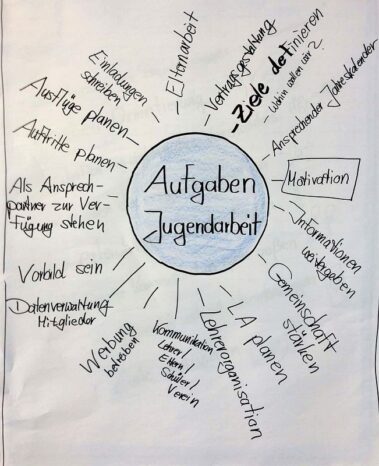 Aufgaben
Jugendarbeit
Elternarbeit
Vertragsgestaltung
- Ziele definieren
- Wohin wollen wir?
Ansprechender Jahreskalender
Motivation
Informationen
weitergeben
Gemeinschaft
stärken
LA planen
Lehrerorganisation
Kommunikation
Lehrer/
Eltern/
Schüler/
Verein
Werbung
betreiben
Datenverwaltung
Mitglieder
Vorbild sein
Als Ansprech-
partner zur Ver-
fügung stehen
Auftritte planen
Ausflüge planen
Einladungen
schreiben